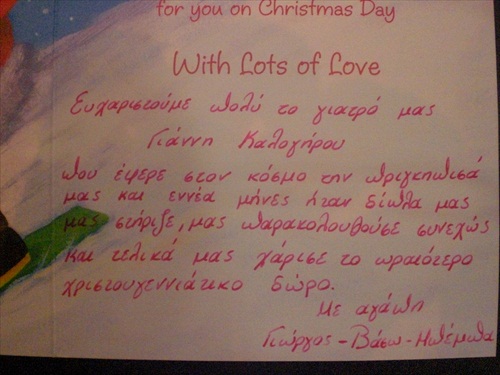 for you on Christmas Day
With Lots of Love
Ευχαριστούμε πολύ το γιατρό μας
Γιάννη Καλογήρου
που έφερε στον κόσμο την πριγκηπισά
μας και εννέα μήνες ήταν δίπλα μας
μας στήριξε, μας παρακολουθούσε συνεχώς
και τελικά μας χάρισε το ωραιότερο
χριστουγεννιάτικο δώρο.
Με αγάπη
Γιώργος - Βάσω - Μπέμπα